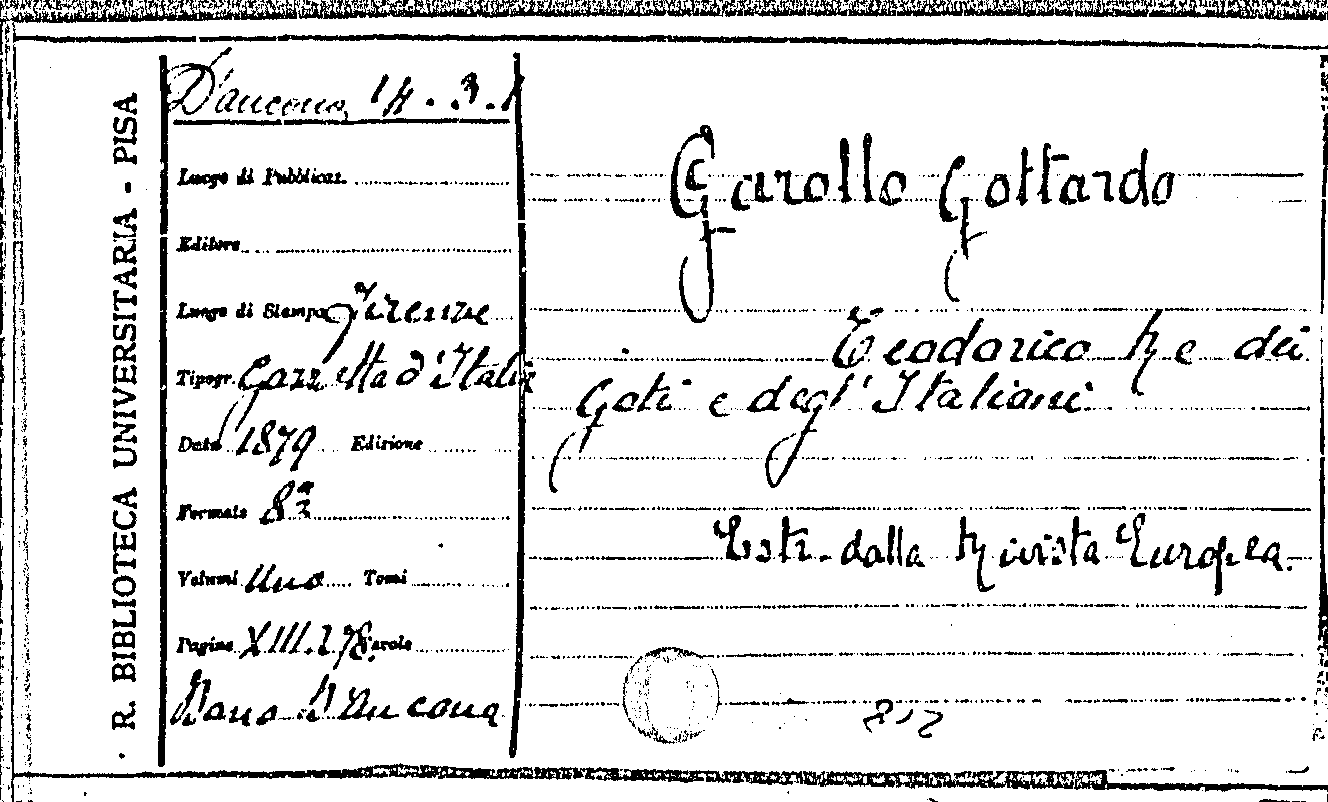 R. BIBLIOTECA UNIVERSITARIA - PISA
D'Ancona 14.3.
Luogo di Pubblicaz.
Editore
Luogo di Stampa Firenze
Tipogr. Gazzetta d'Italia
Data 1879 Edizione
Formato 8º
Volumi Uno Tomi
Pagine XIII. Tavole
Dono D'Ancona
Garollo Gottardo
Teodorico Re dei
Goti e degl'Italiani
Estr. dalla Rivista Europea.